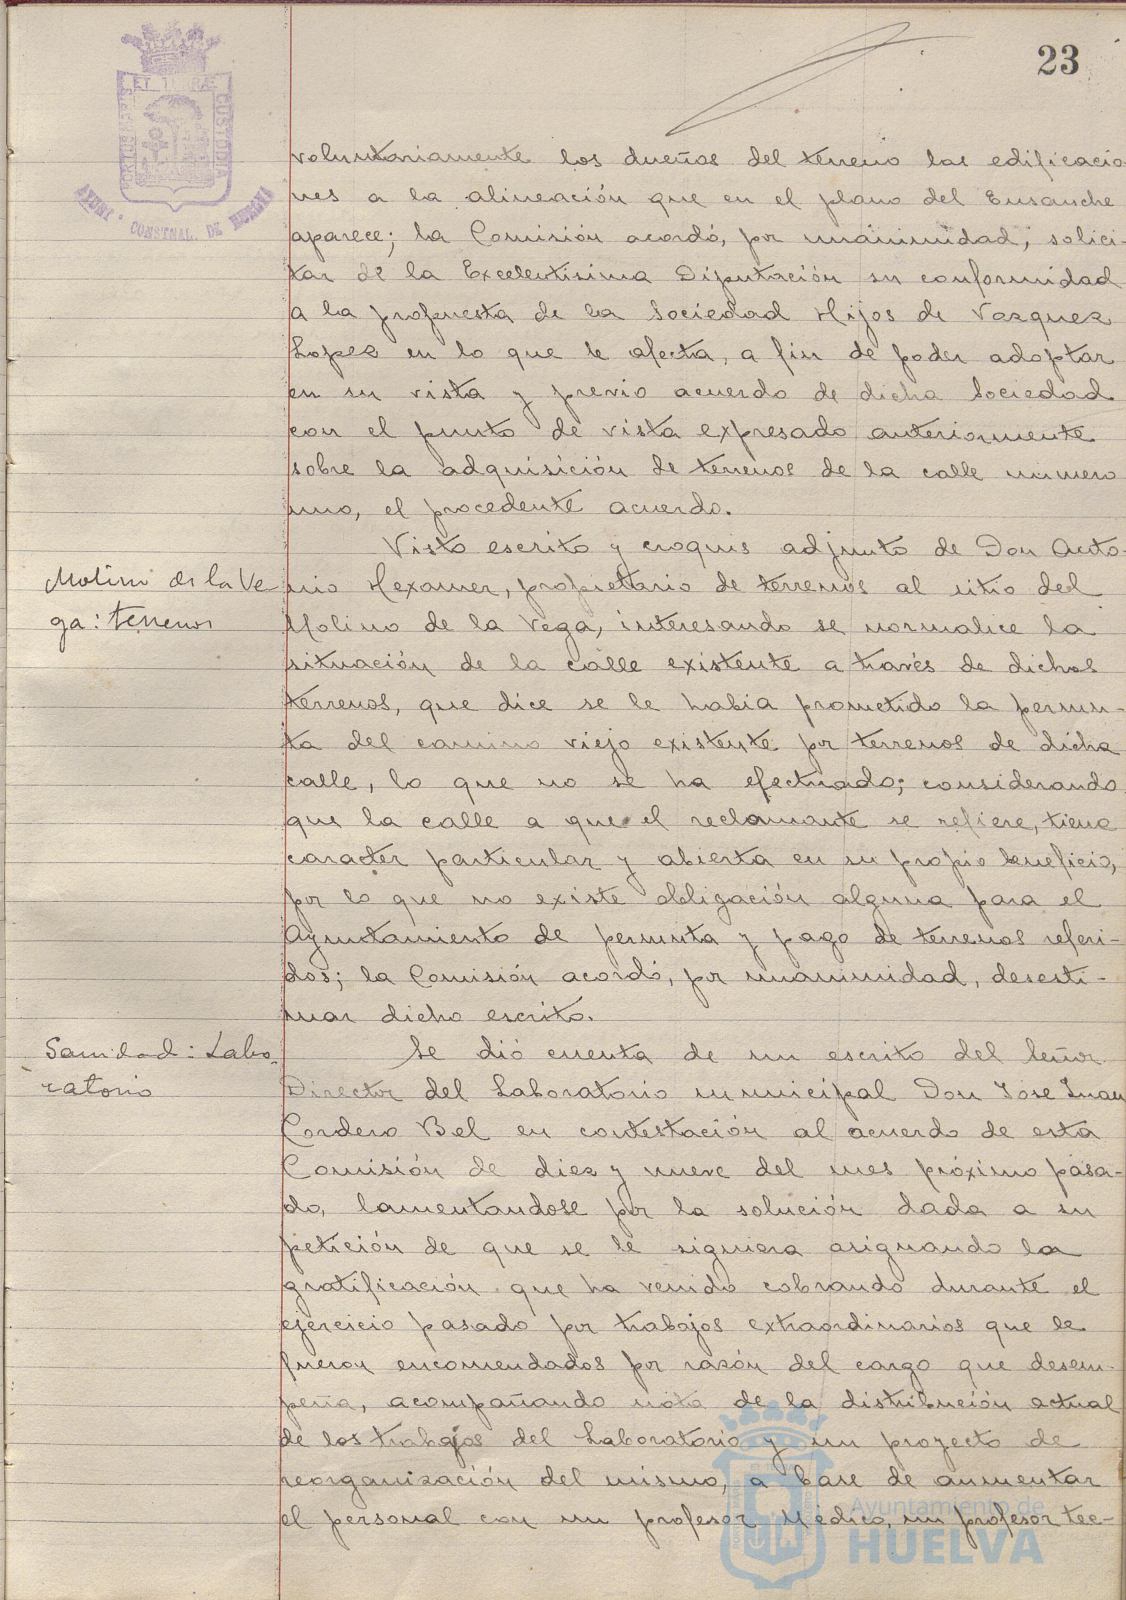 23
PORTUS MARIS ET TERRAE CUSTODIA
AYUNT. CONSTNAL. DE HUELVA
voluntariamente los dueños del terreno las edificacio-
nes a la alineación que en el plano del Ensanche
aparece; la Comisión acordó, por unanimidad, solici-
tar de la Excelentisima Diputación su conformidad
a la propuesta de la Sociedad Hijos de Vazquez
Lopez en lo que le afecta, a fin de poder adoptar
en su vista y previo acuerdo de dicha Sociedad
con el punto de vista expresado anteriormente
sobre la adquisición de terrenos de la calle numero
uno, el procedente acuerdo.
Molino de la Ve
ga: terrenos
Visto escrito y croquis adjunto de Don Anto-
nio Hexamer, propietario de terrenos al sitio del
Molino de la Vega, interesando se normalice la
situación de la calle existente a través de dichos
terrenos, que dice se le habia prometido la permu-
ta del camino viejo existente por terrenos de dicha
calle, lo que no se ha efectuado; considerando
que la calle a que el reclamante se refiere, tiene
caracter particular y abierta en su propio beneficio,
por lo que no existe obligación alguna para el
Ayuntamiento de permuta y pago de terrenos referi-
dos; la Comisión acordó, por unanimidad, desesti-
mar dicho escrito.
Sanidad: Labo-
ratorio
Se dió cuenta de un escrito del Señor
Director del Laboratorio municipal Don Jose Juan
Cordero Bel en contestación al acuerdo de esta
Comisión de diez y nueve del mes próximo pasa-
do, lamentandose por la solución dada a su
petición de que se le siguiera asignando la
gratificación que ha venido cobrando durante el
ejercicio pasado por trabajos extraordinarios que le
fueron encomendados por razón del cargo que desem-
peña, acompañando nota de la distribución actual
de los trabajos del Laboratorio y un proyecto de
reorganización del mismo, a base de aumentar
el personal con un profesor Médico, un profesor tec-
Ayuntamiento de
HUELVA